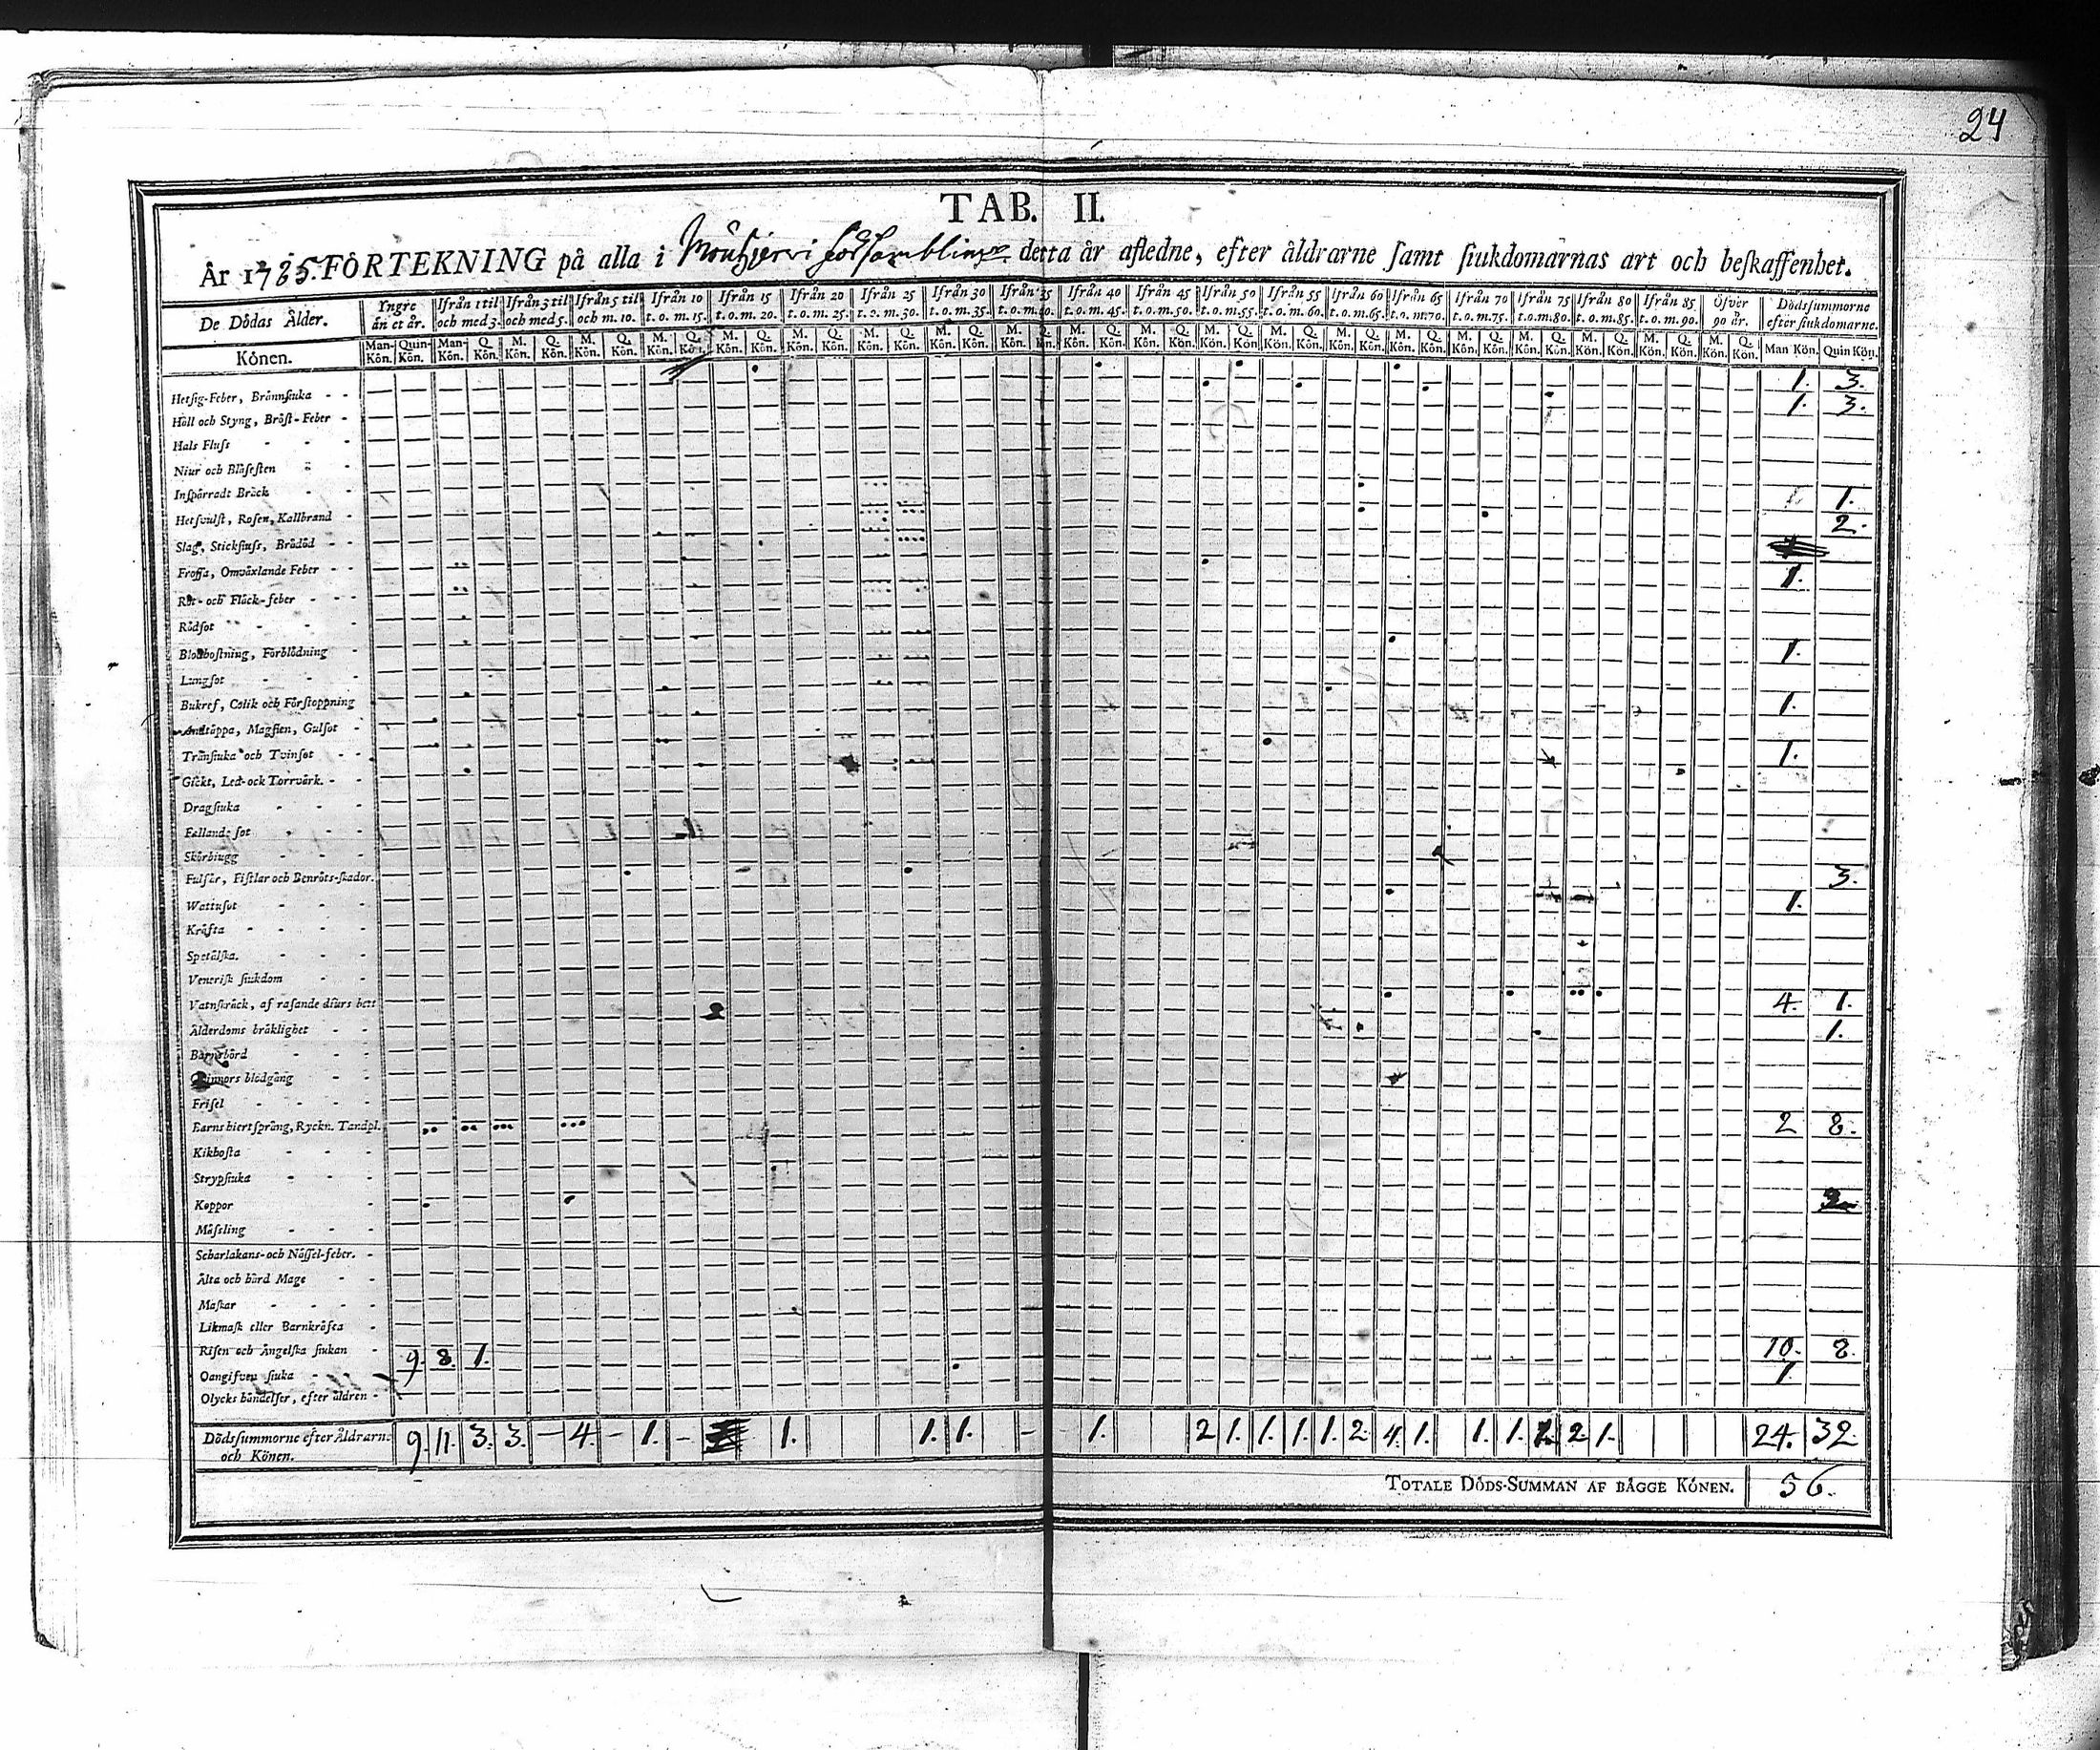 24
TAB. II.
År 1785. FÖRTEKNING på alla i detta år aflednе, efter åldrarne samt siukdomarnas art och beskaffenhet.
De Dödas Ålder. Yngre än et år. Ifrån 1 til och med 3. Ifrån 3 til och med 5. Ifrån 5 til och m. 10. Ifrån 10 t. o. m. 15. Ifrån 15 t. o. m. 20. Ifrån 20 t. o. m. 25. Ifrån 25 t. o. m. 30. Ifrån 30 t. o. m. 35. Ifrån 35 t. o. m. 40. Ifrån 40 t. o. m. 45. Ifrån 45 t. o. m. 50. Ifrån 50 t. o. m. 55. Ifrån 55 t. o. m. 60. Ifrån 60 t. o. m. 65. Ifrån 65 t. o. m. 70. Ifrån 70 t. o. m. 75. Ifrån 75 t. o. m. 80. Ifrån 80 t. o. m. 85. Ifrån 85 t. o. m. 90. Öfver 90 år. Dödssummorne efter siukdomarne.
Könen. Man-Kön. Quin-Kön. Man-Kön. Q. Kön. M. Kön. Q. Kön. M. Kön. Q. Kön. M. Kön. Q. Kön. M. Kön. Q. Kön. M. Kön. Q. Kön. M. Kön. Q. Kön. M. Kön. Q. Kön. M. Kön. Q. Kön. M. Kön. Q. Kön. M. Kön. Q. Kön. M. Kön. Q. Kön. M. Kön. Q. Kön. M. Kön. Q. Kön. M. Kön. Q. Kön. M. Kön. Q. Kön. M. Kön. Q. Kön. M. Kön. Q. Kön. M. Kön. Q. Kön. M. Kön. Q. Kön. Man Kön. Quin Kön.
Hetsig-Feber, Brännsiuka 1. 3.
Håll och Styng, Bröst-Feber 1. 3.
Hals Fluss
Niur och Blåsesten
Inspärradt Bräck
Hetsvulst, Rosen, Kallbrand 1.
Slag, Stickfluss, Brådöd 2.
Frossa, Omväxlande Feber
Röt- och Fläck-feber 1.
Rödsot
Blodhostning, Förblödning
Lungsot 1.
Bukref, Colik och Förstoppning
Andtäppa, Magsien, Gulsot 1.
Tränsiuka och Tvinsot
Gickt, Led- ock Torrvärk. 1.
Dragsiuka
Fallande sot
Skörbiugg
Fulsår, Fistlar och Benröts-skador.
Wattusot 3.
Kräfta 1.
Spetälska.
Venerisk siukdom
Vatnskräck, af rasande diurs bett
Ålderdoms bräklighet 4. 1.
Barnsbörd 1.
Quinnors blodgång
Frisel
Barns hiertsprång, Ryckn. Tandpl. 2 8.
Kikhosta
Strypsiuka
Koppor
Mässling
Scharlakans- och Nässel-feber.
Älta och hård Mage
Maskar
Likmask eller Barnkräfta
Risen och Ängelska siukan
Oangifven siuka 9. 8. 1. 10. 8.
Olycks händelser, efter åldren 1.
Dödssummorne efter Åldrarne och Könen. 9. 11. 3. 3. – 4. – 1. – 1. 1. 1. – – 1. 2 1. 1. 1. 1. 2. 4. 1. 1. 1. 2. 2 1. 24. 32.
TOTALE DÖDS-SUMMAN AF BÅGGE KÖNEN. 56.